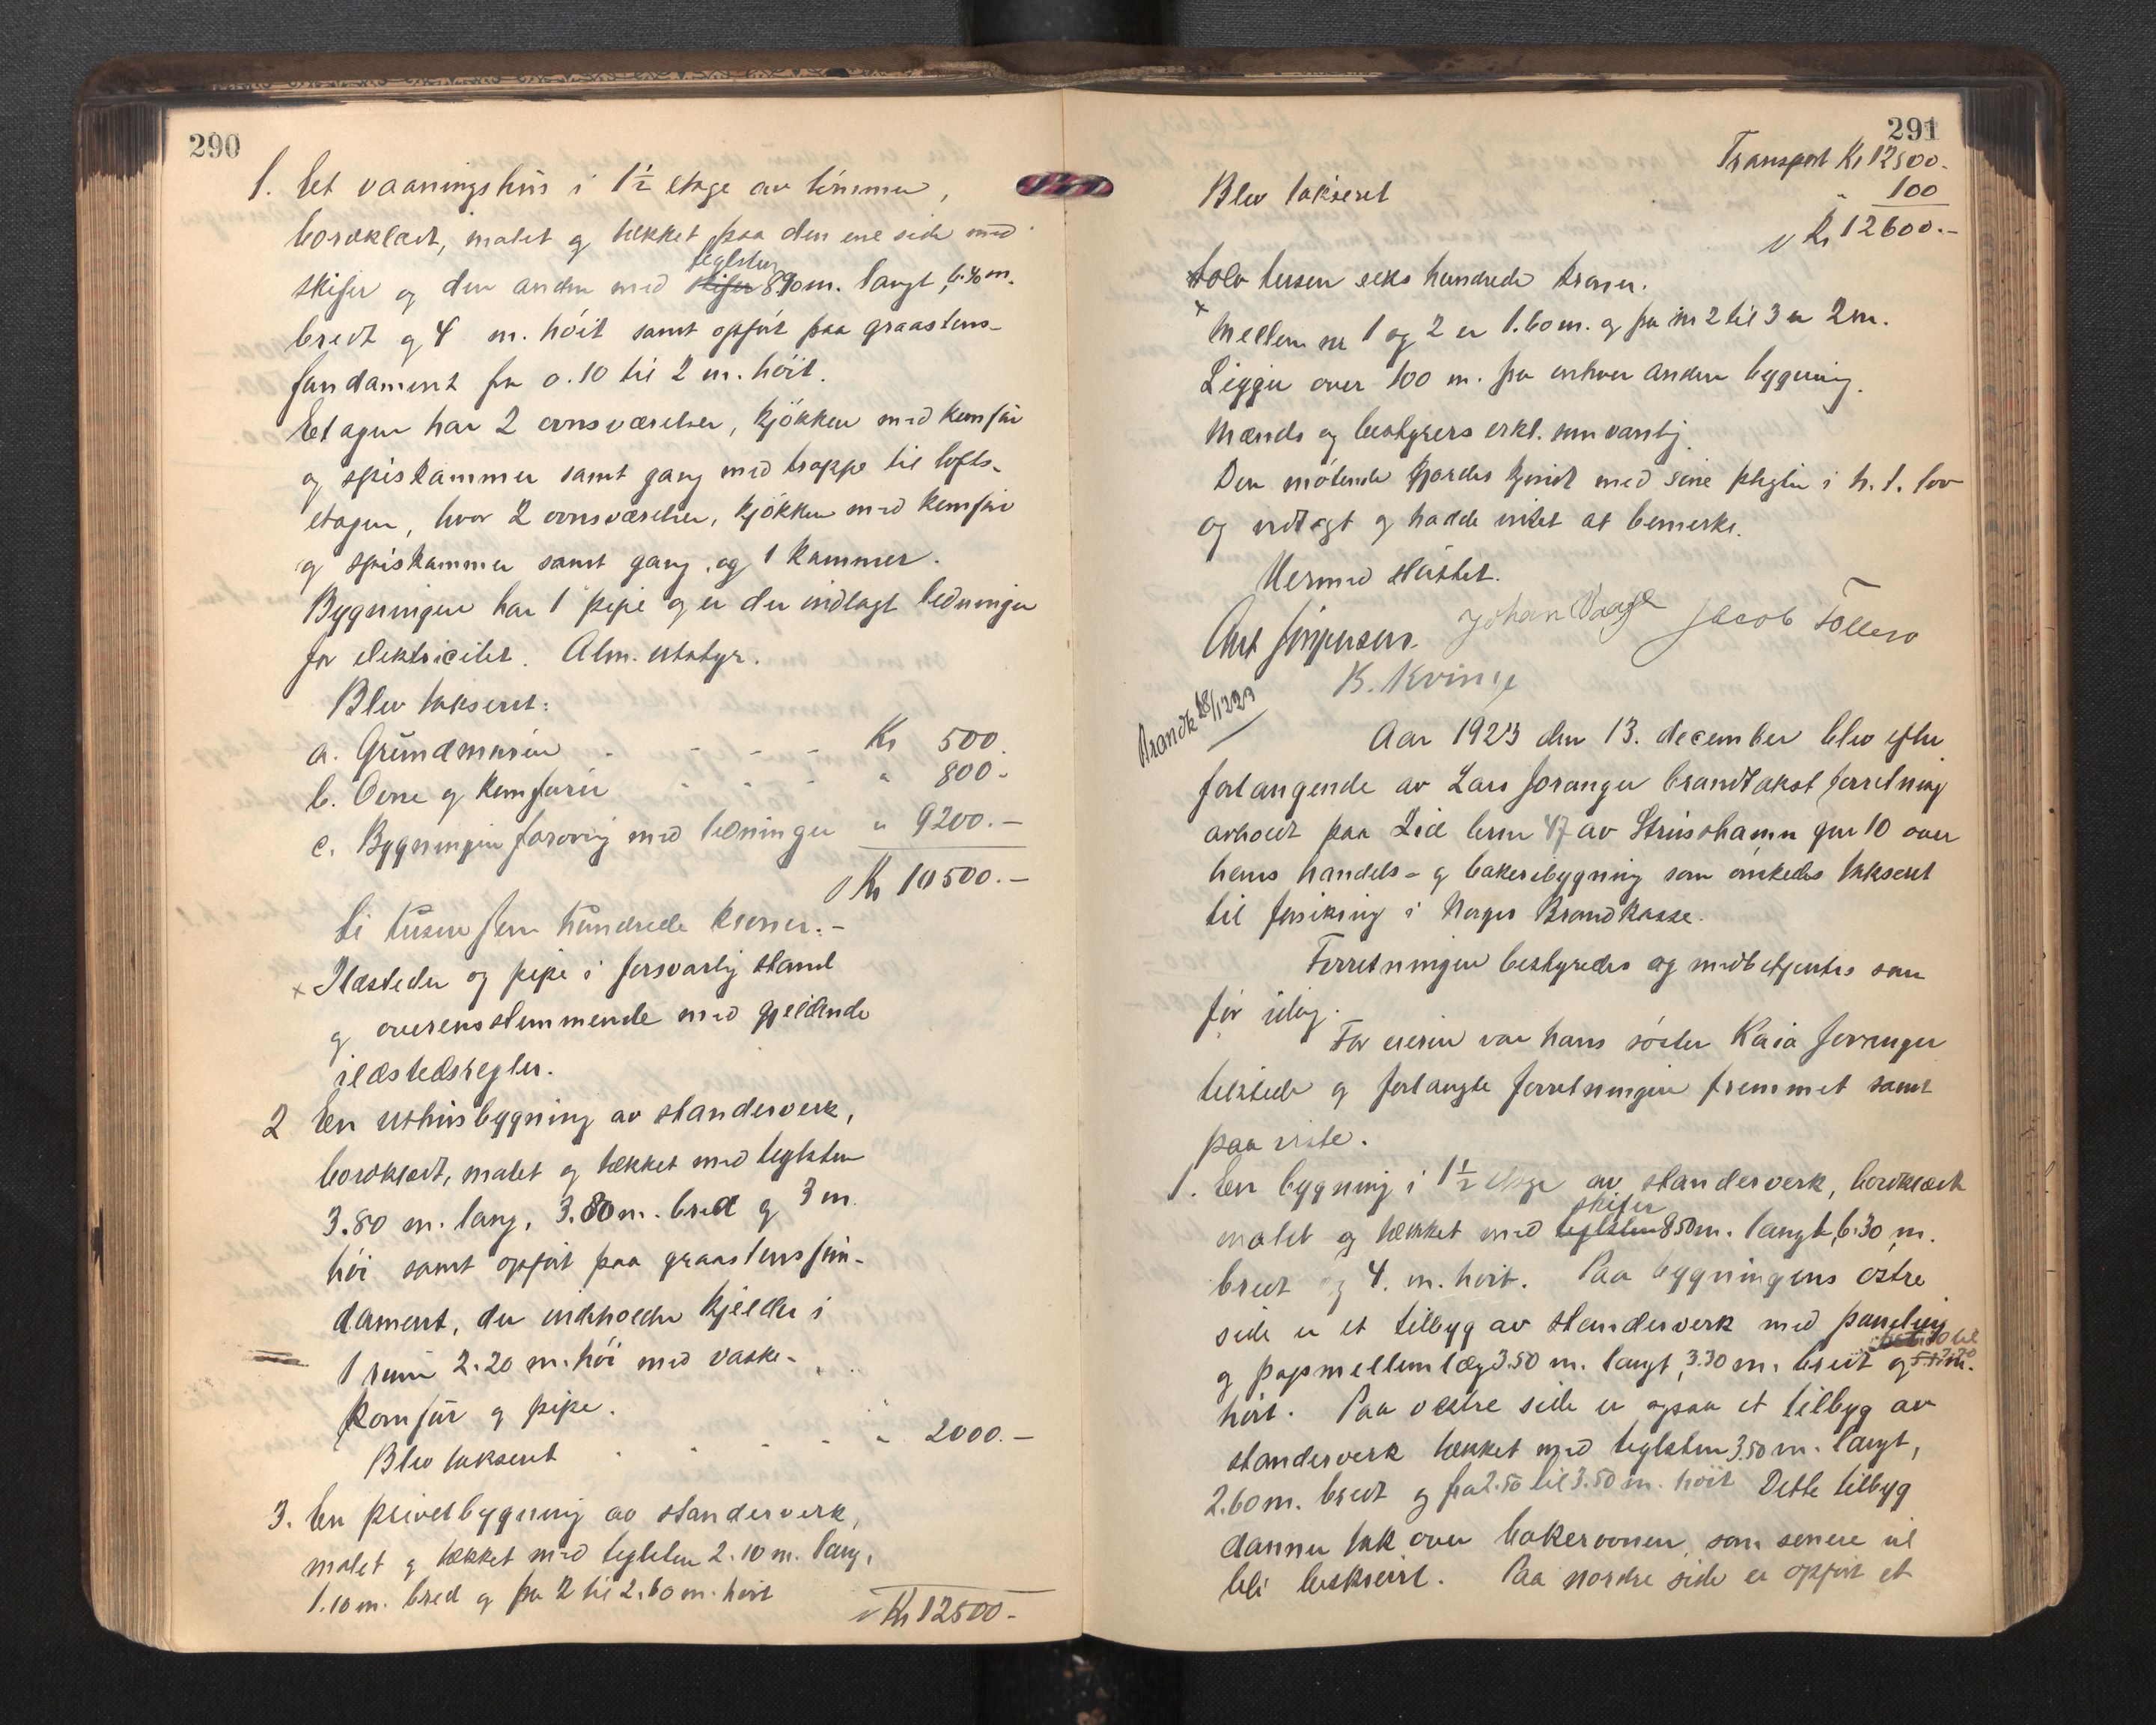 290
1. Et vaaningshus i 1½ etage av tømmer,
bordklædt, malet og tækket paa den ene side med
skifer og den anden med skifer teglsten 8.90 m. langt, 6.40 m.
bredt og 4 m. höit samt opfört paa graastens-
fundament fra 0.10 til 2 m. höit.
Etagen har 2 ovnsværelser, kjökken med komfür
og spiskammer samt gang med trappe til lofts-
etagen, hvor 2 ovnsværelser, kjökken med komfür
og spiskammer samt gang og 1 kammer.
Bygningen har 1 pipe og er der indlagt ledninger
for elektricitet. Alm. utstyr.
Blev taksert:
a. Grundmuren - - - - Kr 500.
b. Ovne og komfurer - - - " 800.-
c. Bygningen forövrig med ledninger " 9200.-
Kr 10500.-
ti tusen fem hundrede kroner.-
x Ildsteder og pipe i forsvarlig stand
og overensstemmende med gjeldende
ildstedsregler.
2 En uthusbygning av standerverk,
bordklædt, malet og tækket med teglsten
3.80 m. lang, 3.80 m. bred og 3 m.
höi samt opfört paa graastensfun-
dament, der indeholder kjelder i
1 rum 2.20 m. höi med vaske-
komfür og pipe.
Blev taksert - - - - " 2000.-
3. En privetbygning av standerverk,
malet og tækket med teglsten 2.10 m. lang,
1.10 m. bred og fra 2 til 2.60 m. höit
Kr 12500-
291
Transport Kr 12500.-
Blev taksert " 100
Kr 12600.-
tolv tusen seks hundrede kroner.
x Mellem nr 1 og 2 er 1.60 m. og fra nr 2 til 3 er 2 m.
Ligger over 100 m. fra enhver anden bygning.
Mænds og bestyrers erkl. som vanlig.
Den mötende gjordes kjendt med sine pligter i h. t. lov
og vedtægt og hadde intet at bemerke.
Hermed sluttet.
Johan Vaage Jacob Tollero
K. Kvinge
Aar 1923 den 13. december blev efter
forlangende av Lars Joranger brandtakst forretning
avholdt paa Lid brnr 47 av Strusshamn gnr 10 over
hans handels- og bakeribygning som önskedes taksert
til forsikring i Norges Brandkasse.
Forretningen bestyredes og medbetjentes som
för idag.
For eieren var hans söster Kaia Joranger
tilstede og forlangte forretningen fremmet samt
paaviste.
1. En bygning i 1½ etage av standerverk, bordklædt
malet og tækket med teglsten skifer 8.50 m. langt, 6.30 m.
bredt og 4. m. höit. Paa bygningens östre
side er et tilbyg av standerverk med paneling
og papmellemlæg 3.50 m. langt, 3.30 m. bredt og m.
höit. Paa vestre side er ogsaa et tilbyg av
standerverk tækket med teglsten 3.50 m. langt,
2.60 m. bredt og fra 2.50 til 3.50 m. höit Dette tilbyg
danner tak over bakerovnen, som senere vil
bli beskrevet. Paa nordre side er opfört et